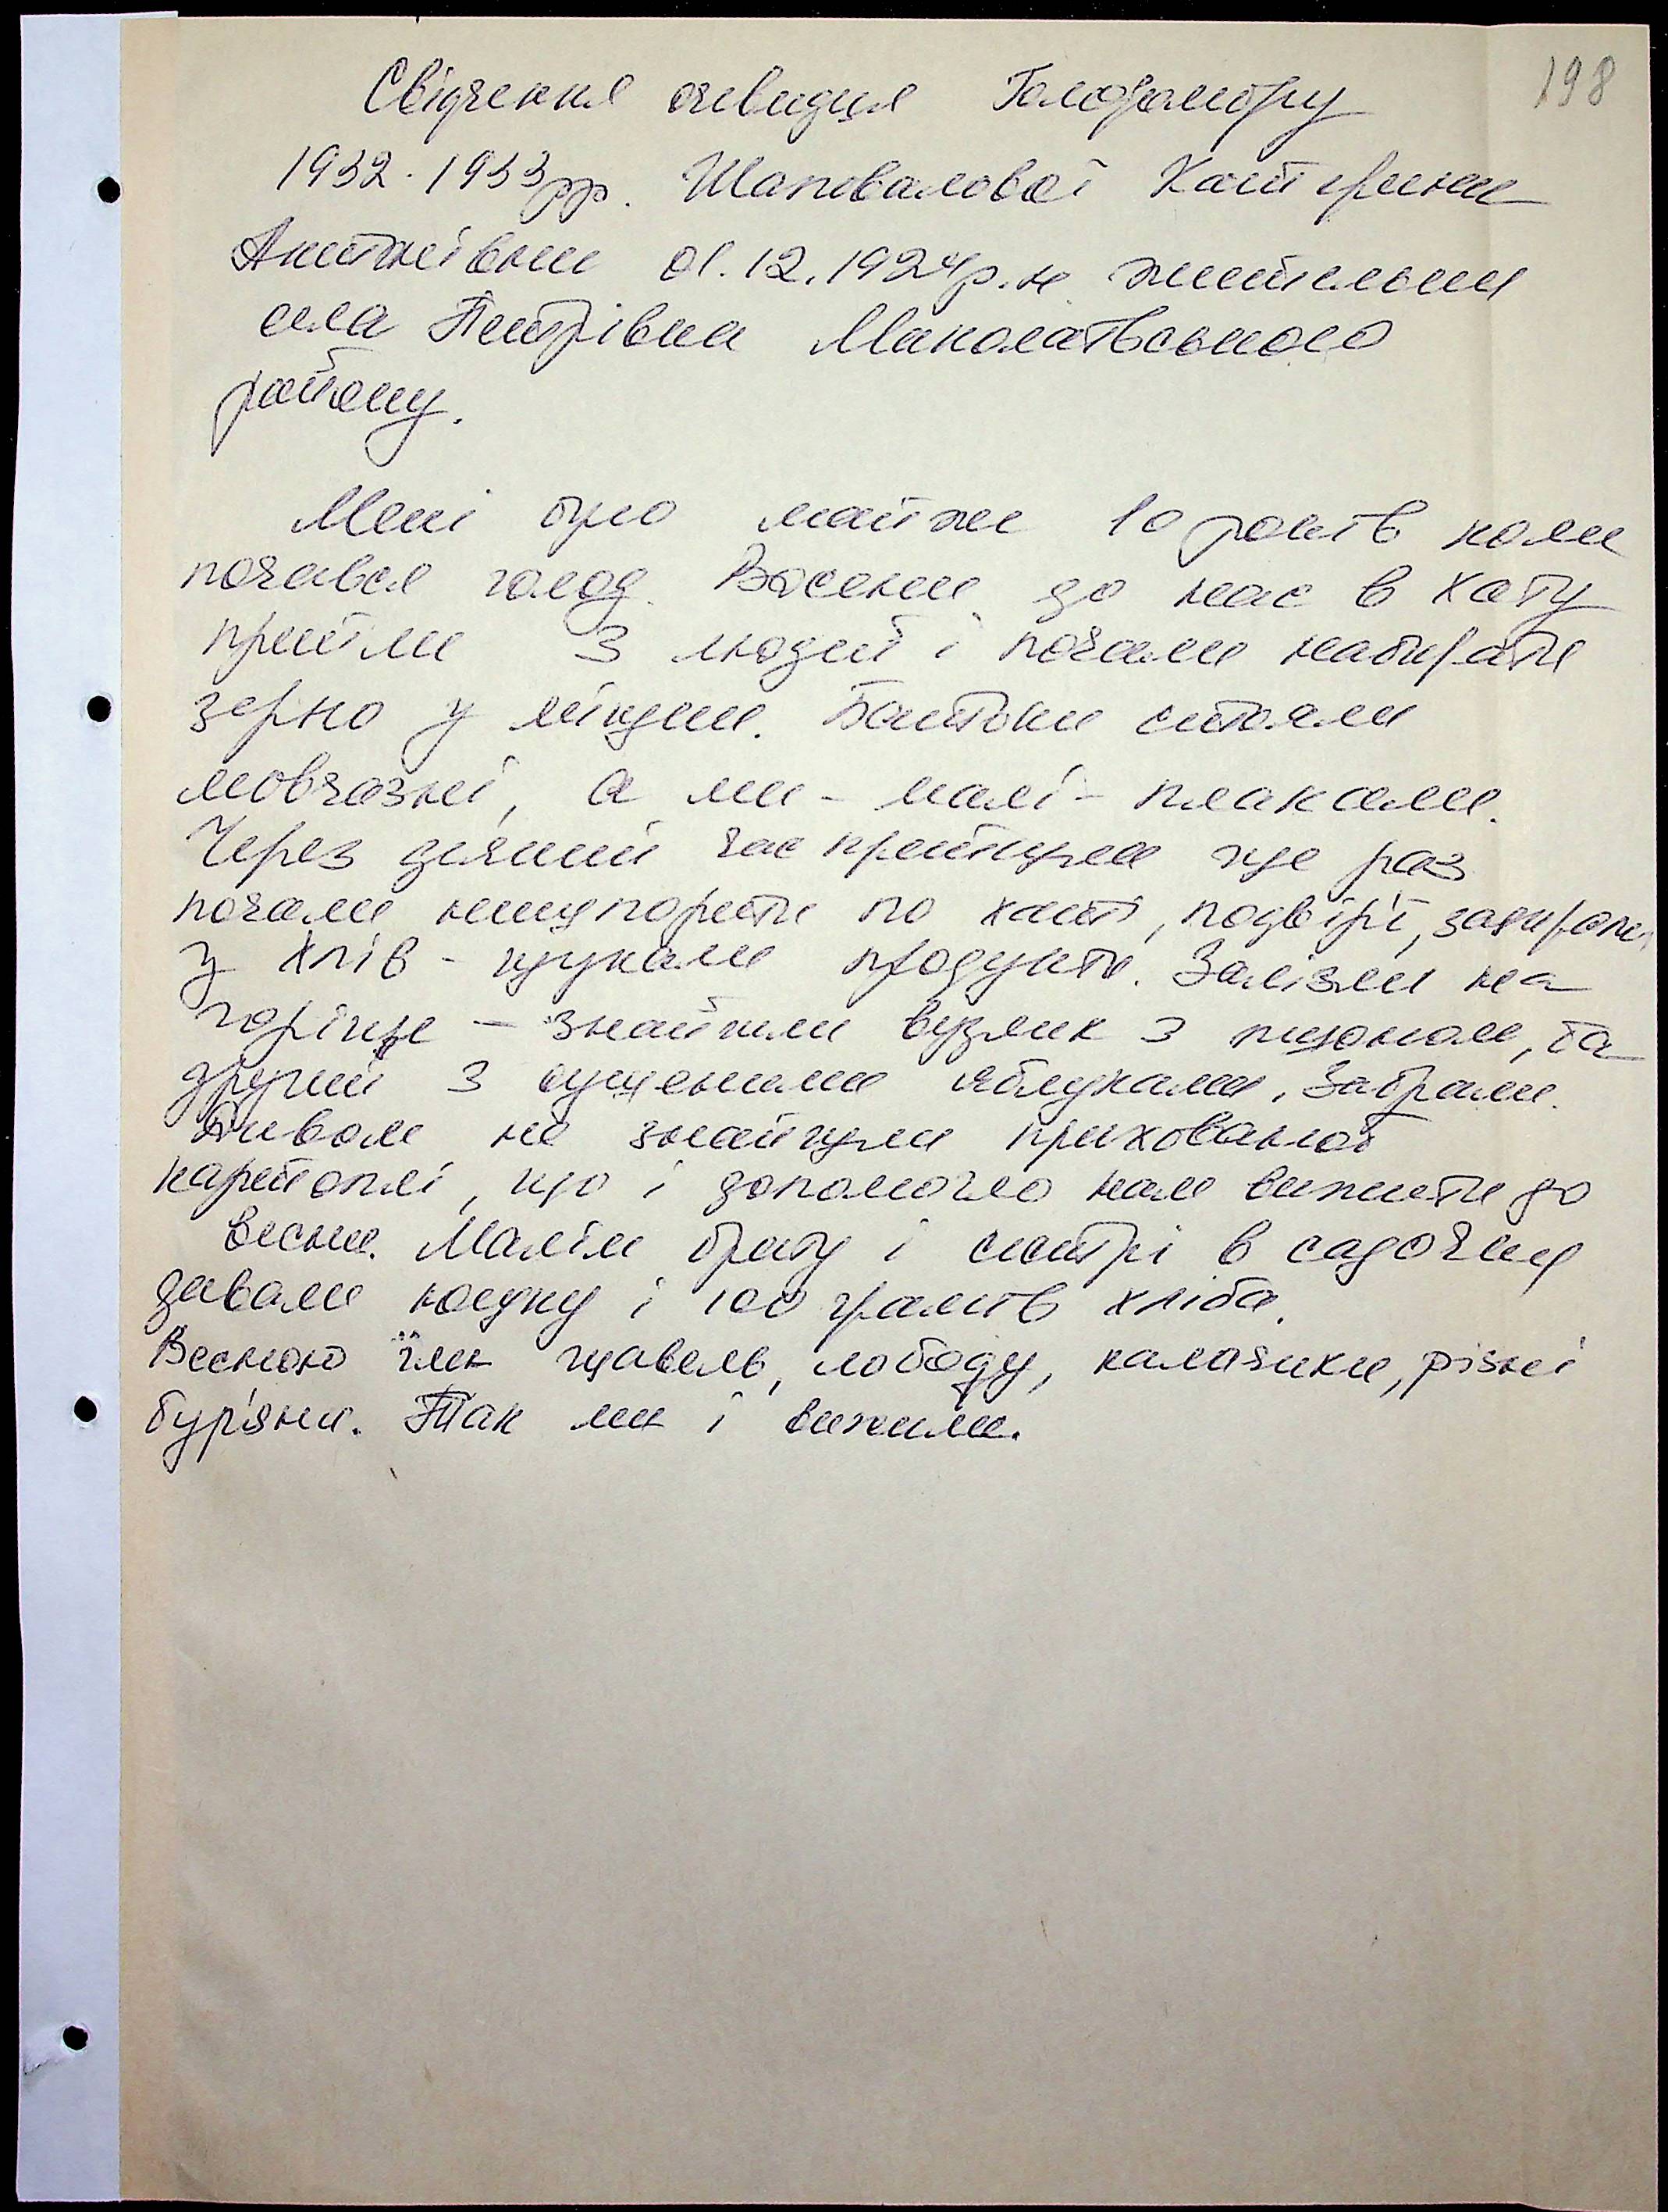 198
Свідчення очевидця Голодомору
1932-1933рр. Шаповалової Катерини
Антонівни 01.12.1924р.н. жительки
села Петрівка
району.
Мені було майже 10 років коли
почався голод. Восени до нас в хату
прийшли 3 людей і почали набирати
зерно у мішки. Батьки стояли
мовчазні, а ми - малі - плакали.
Через деякий час прийшли ще раз
почали нишпорити по хаті, подвір'ї, зазирали
у хлів - шукали продукти. Залізли на
горіще - знайшли вузлик з пшоном, та
другий з сушеними яблуками. Забрали.
Дивом не знайшли прихованої
картоплі, що і допомогло нам вижити до
весни. Малім брату і сестрі в садочку
давали юшку і 100 грамів хліба.
Весною їли щавель, лободу, калачики, різні
бур'яни. Так ми і вижили.